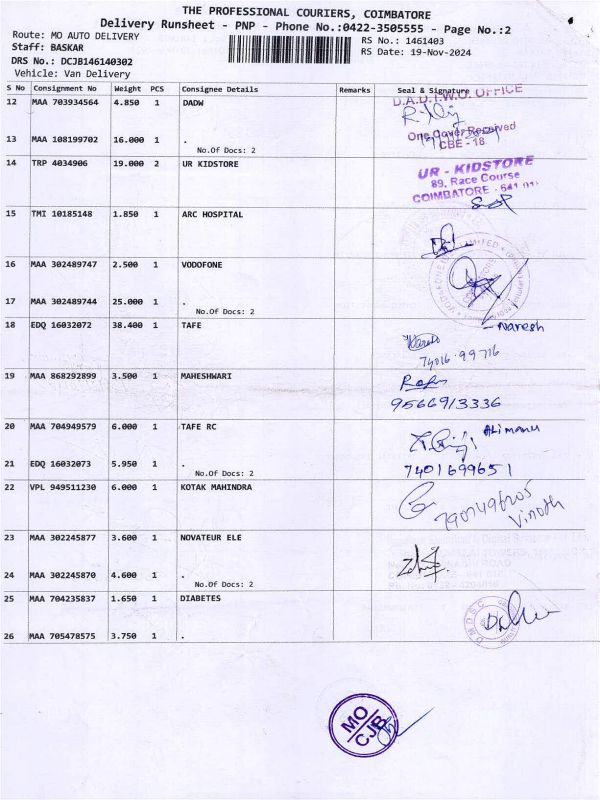 THE PROFESSIONAL COURIERS, COIMBATORE
Delivery Runsheet - PNP - Phone No.:0422-3505555 - Page No.:2
Route: MO AUTO DELIVERY
RS No.: 1461403
Staff: BASKAR
RS Date: 19-Nov-2024
DRS No.: DCJB146140302
Vehicle: Van Delivery
S No Consignment No Weight PCS Consignee Details Remarks Seal & Signature
12 MAA 703934564 4.850 1 DADW
D.A.D.T.W.O. OFFICE
13 MAA 108199702 16.000 1 .
One Cover Received
No.Of Docs: 2
CBE - 18
14 TRP 4034906 19.000 2 UR KIDSTORE
UR - KIDSTORE
89, Race Course
COIMBATORE - 641 01
15 TMI 10185148 1.850 1 ARC HOSPITAL
16 MAA 302489747 2.500 1 VODOFONE
17 MAA 302489744 25.000 1 .
No.Of Docs: 2
18 EDQ 16032072 38.400 1 TAFE
- Naresh
74016 99716
19 MAA 868292899 3.500 1 MAHESHWARI
9566913336
20 MAA 704949579 6.000 1 TAFE RC
21 EDQ 16032073 5.950 1 .
7401699651
No.Of Docs: 2
22 VPL 949511230 6.000 1 KOTAK MAHINDRA
Vinoth
23 MAA 302245877 3.600 1 NOVATEUR ELE
24 MAA 302245870 4.600 1 .
No.Of Docs: 2
25 MAA 704235837 1.650 1 DIABETES
26 MAA 705478575 3.750 1 .
MO
CJB